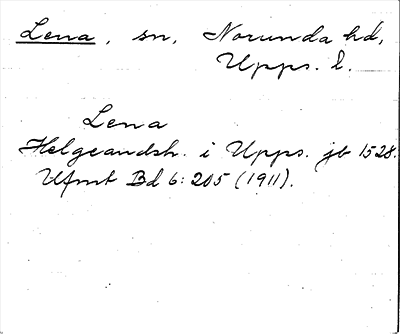 Lena, sn, Norunda hd,
Upps. l.
Lena
Helgeandsh. i Upps. jb 1528.
Ufmt Bd 6: 205 (1911).